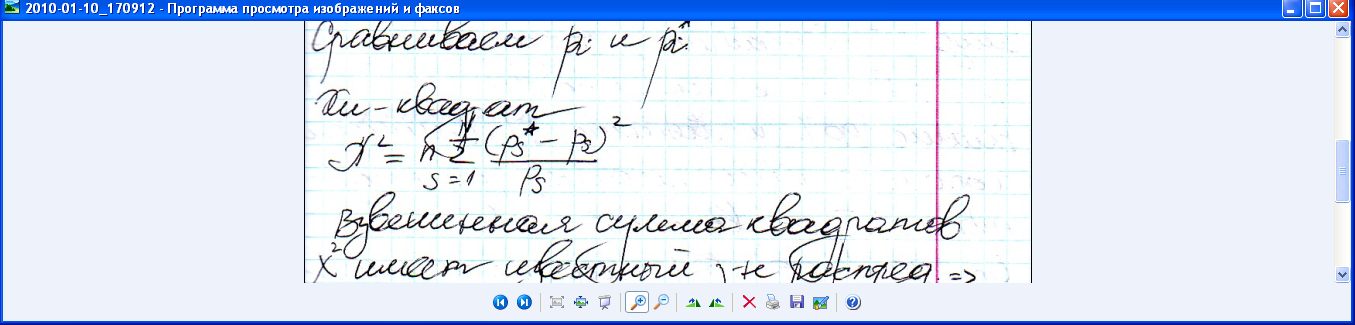 2010-01-10_170912 - Программа просмотра изображений и факсов
Сравниваем pi и pi*
Хи-квадрат
χ² = n Σ (ps* - ps)²
s=1 ps
Взвешенная сумма квадратов
χ² имеет известный распред. =>